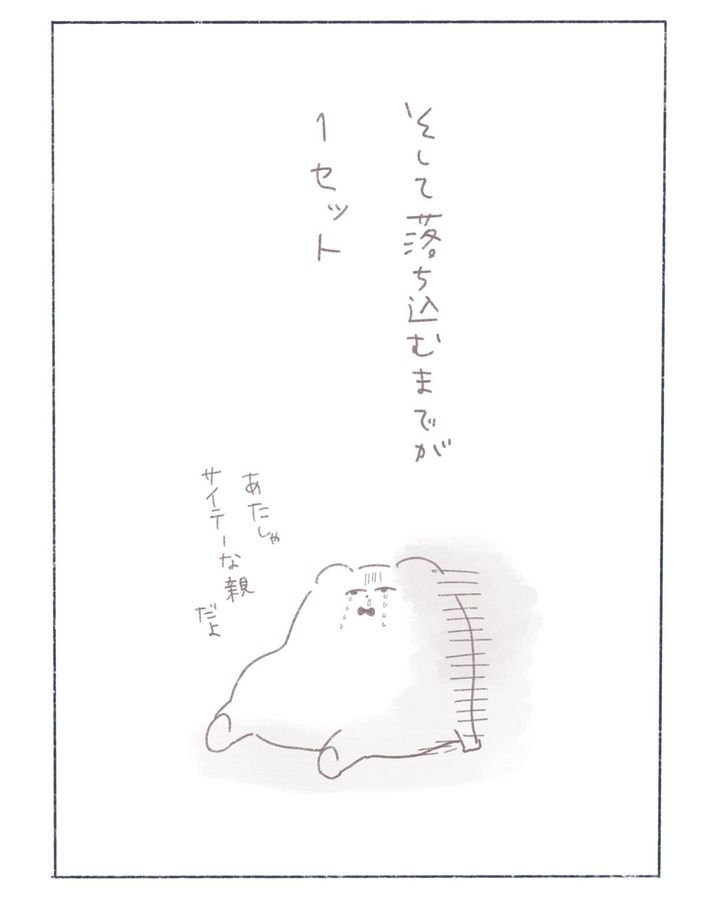 そして落ち込むまでが
1セット
あたしゃ
サイテーな親
だよ